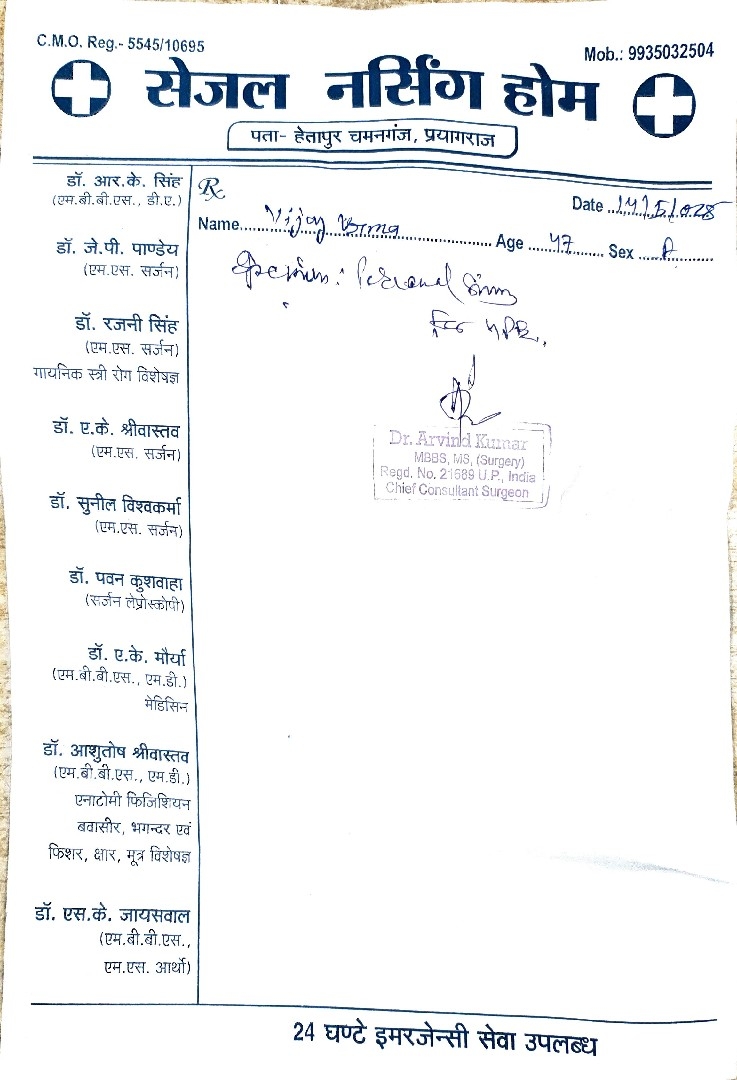 C.M.O. Reg.- 5545/10695
Mob.: 9935032504
सेजल नर्सिंग होम
पता- हेतापुर चमनगंज, प्रयागराज
डॉ. आर.के. सिंह
(एम.बी.बी.एस., डी.ए.)
डॉ. जे.पी. पाण्डेय
(एम.एस. सर्जन)
डॉ. रजनी सिंह
(एम.एस. सर्जन)
गायनिक स्त्री रोग विशेषज्ञ
डॉ. ए.के. श्रीवास्तव
(एम.एस. सर्जन)
डॉ. सुनील विश्वकर्मा
(एम.एस. सर्जन)
डॉ. पवन कुशवाहा
(सर्जन लेप्रोस्कोपी)
डॉ. ए.के. मौर्या
(एम.बी.बी.एस., एम.डी.)
मेडिसिन
डॉ. आशुतोष श्रीवास्तव
(एम.बी.बी.एस., एम.डी.)
एनाटोमी फिजिशियन
बवासीर, भगन्दर एवं
फिशर, क्षार, मूत्र विशेषज्ञ
डॉ. एस.के. जायसवाल
(एम.बी.बी.एस.,
एम.एस. आर्थो)
Rx
Date
Name Vijay Age 47 Sex
Dr. Arvind Kumar
MBBS, MS, (Surgery)
Regd. No. 21569 U.P., India
Chief Consultant Surgeon
24 घण्टे इमरजेन्सी सेवा उपलब्ध